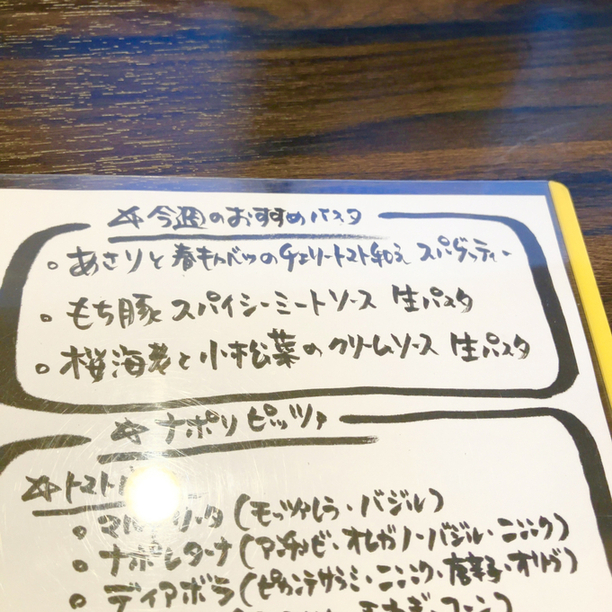 ☆今週のおすすめパスタ
。あさりと春キャベツのチェリートマト和え スパゲッティー
。もち豚スパイシーミートソース 生パスタ
。桜海老と小松菜のクリームソース 生パスタ
☆ナポリピッツァ
☆トマト
。マルゲリータ(モッツァレラ・バジル)
。ナポレターナ(アンチョビ・オレガノ・バジル・ニンニク)
。ディアボラ(ピカンテサラミ・ニンニク・唐辛子・オリーブ)